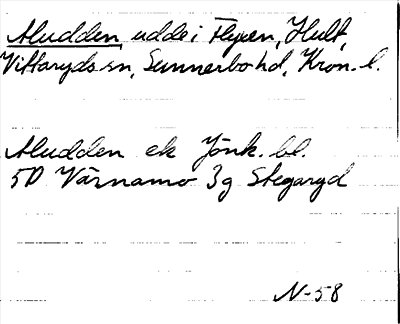 Aludden, udde i Flyxen, Hult,
Vittaryds sn, Sunnerbo hd, Kron. l.
Aludden ek Jönk. bl.
5D Värnamo 3g Stegaryd
N-58